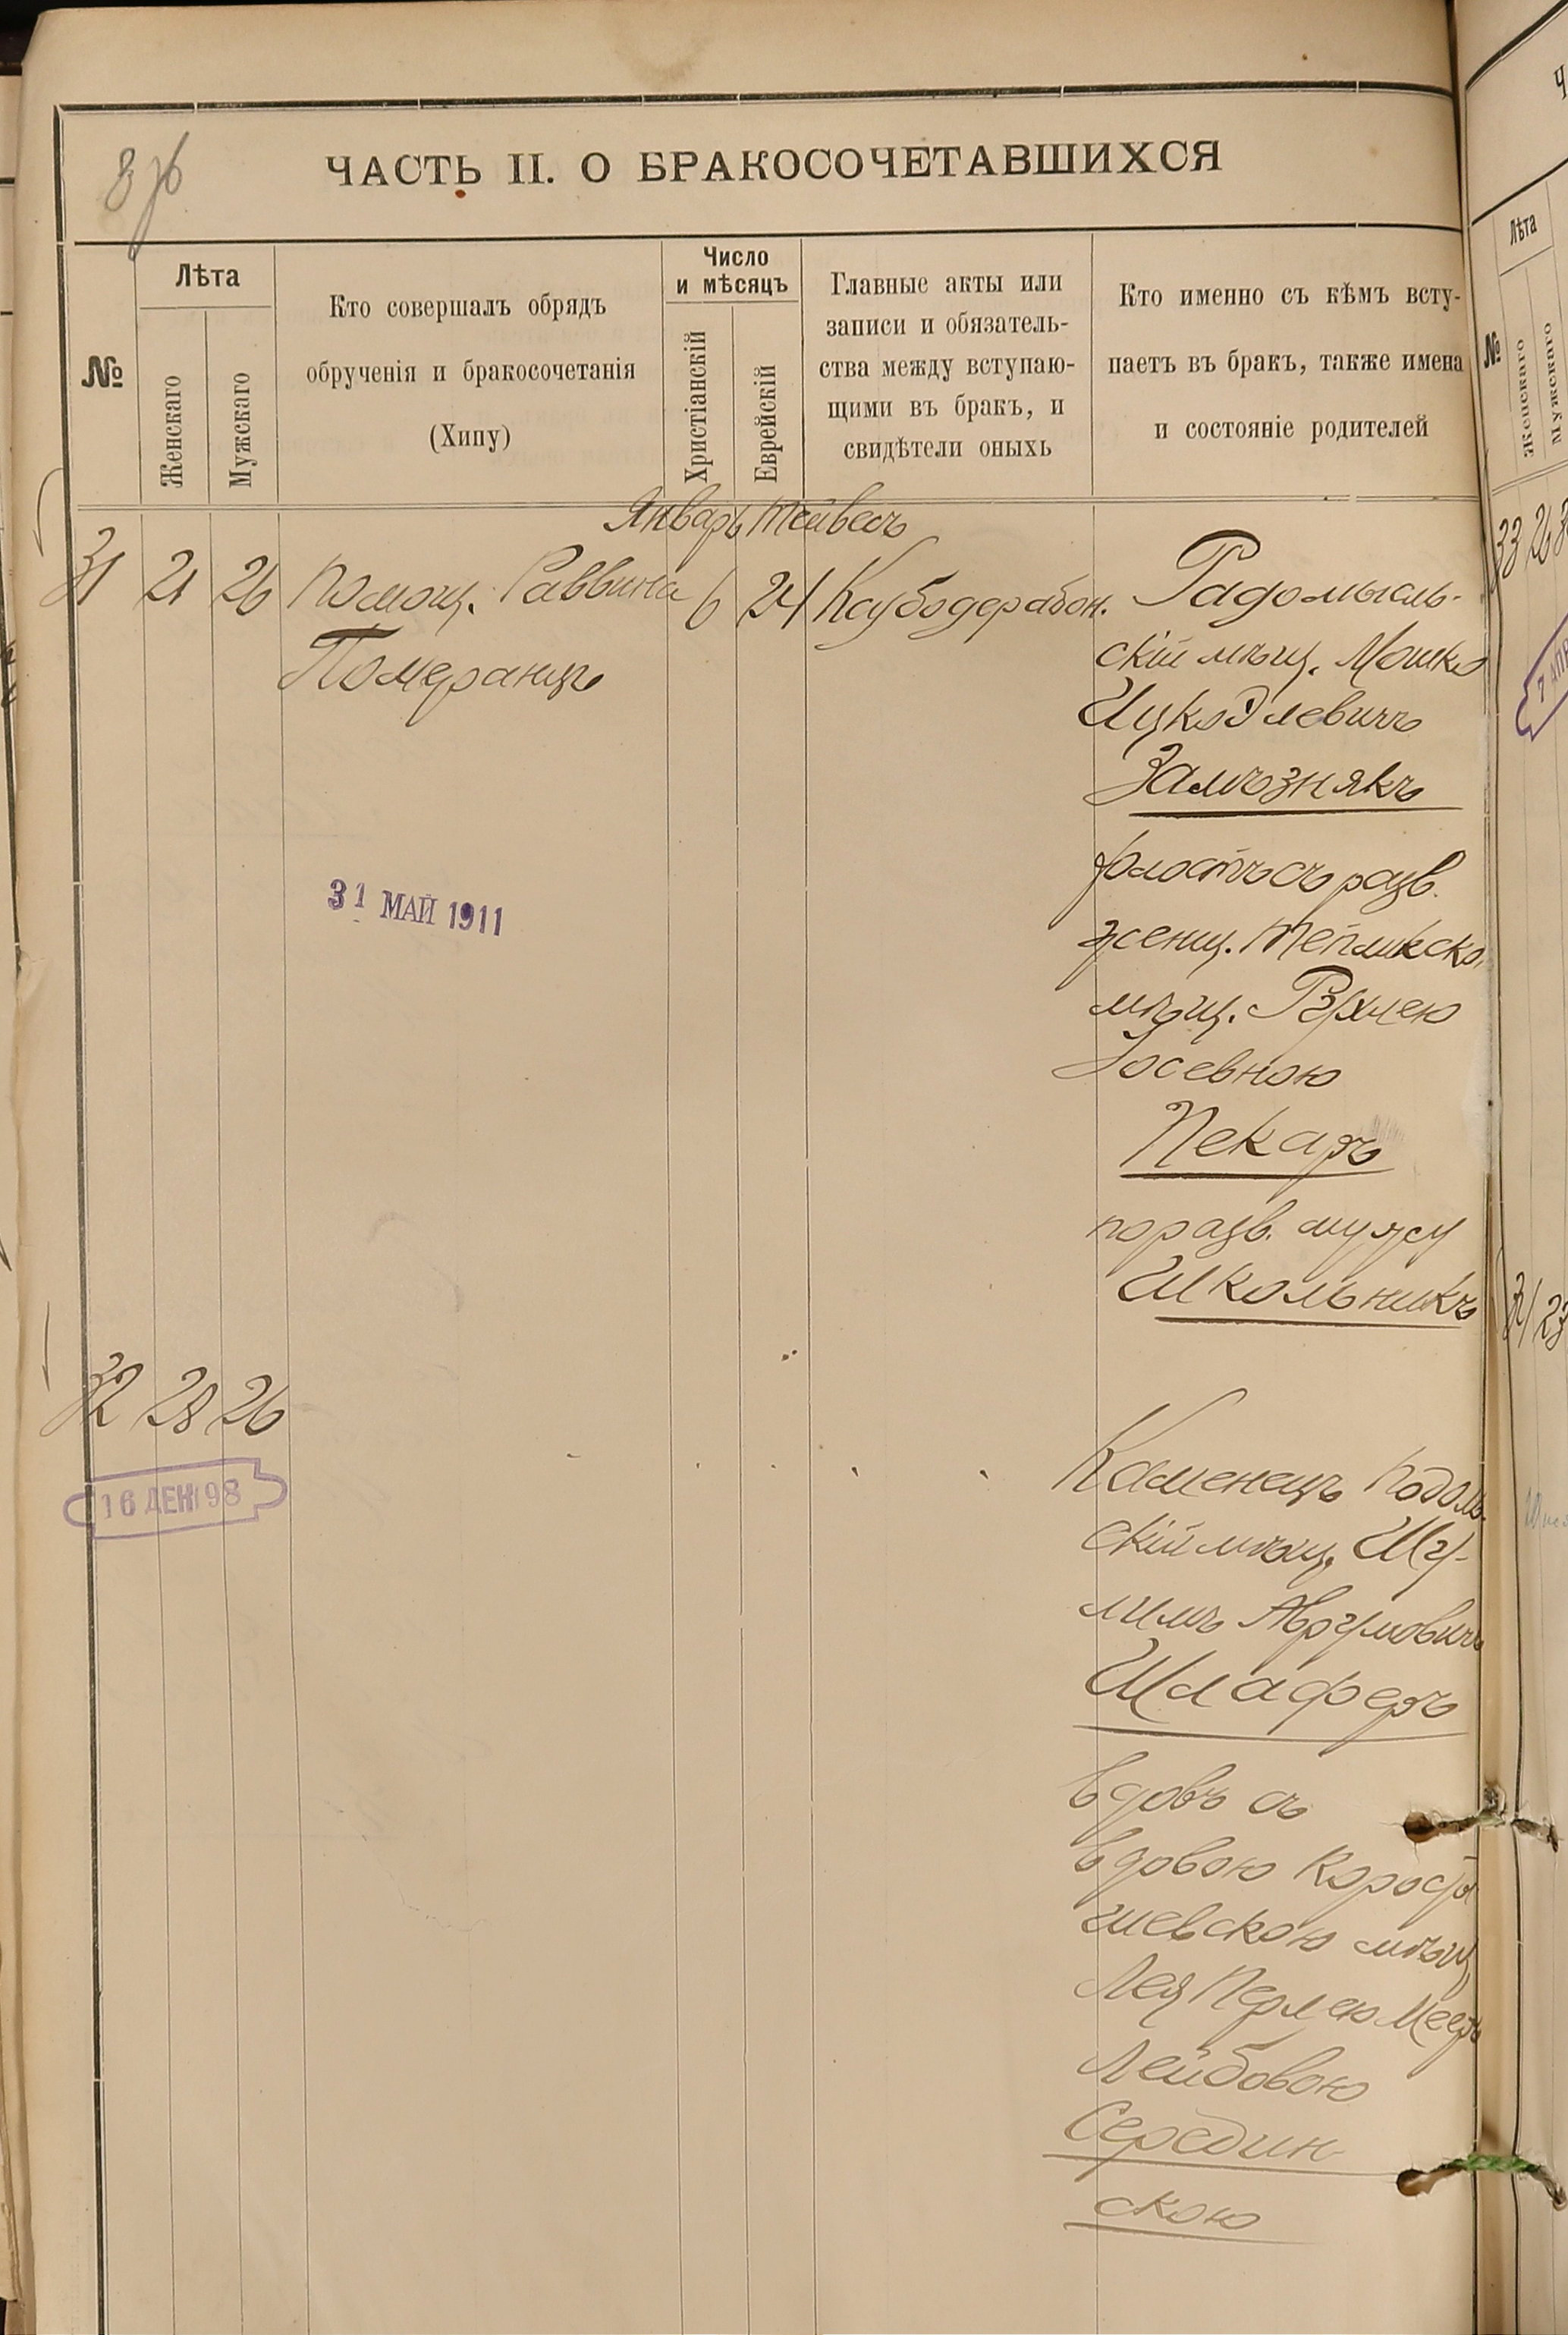 ЧАСТЬ II. О БРАКОСОЧЕТАВШИХСЯ
№
Лѣта
Женскаго
Мужскаго
Кто совершалъ обрядъ
обрученія и бракосочетанія
(Хипу)
Число
и мѣсяцъ
Христіанскій
Еврейскій
Главные акты или
записи и обязатель-
ства между вступаю-
щими въ бракъ, и
свидѣтели оныхъ
Кто именно съ кѣмъ всту-
паетъ въ бракъ, также имена
и состояніе родителей
Январь Тейвесъ
31 21 26 Помощ. Раввина 6 24
Померанцъ
Радомысль-
скій мѣщ. Мошко
Ицко Элевичъ
Замѣзнякъ
холостъ съ разв.
женщ. Тепликско.
мѣщ. Рухлею
Іосевною
Пекаръ
по разв. мужу
Школьникъ
31 МАЙ 1911
32 28 26
16 ДЕК 98
Каменецъ Подоль-
скій мѣщ. Шу-
лимъ Аврумовичъ
Шлаферъ
вдовъ съ
вдовою Коросты
шевскою мѣщ.
Лея Перлею Меер
Лейбовою
Середин
скою
Лѣта
№
Женскаго
Мужскаго
33 26
23